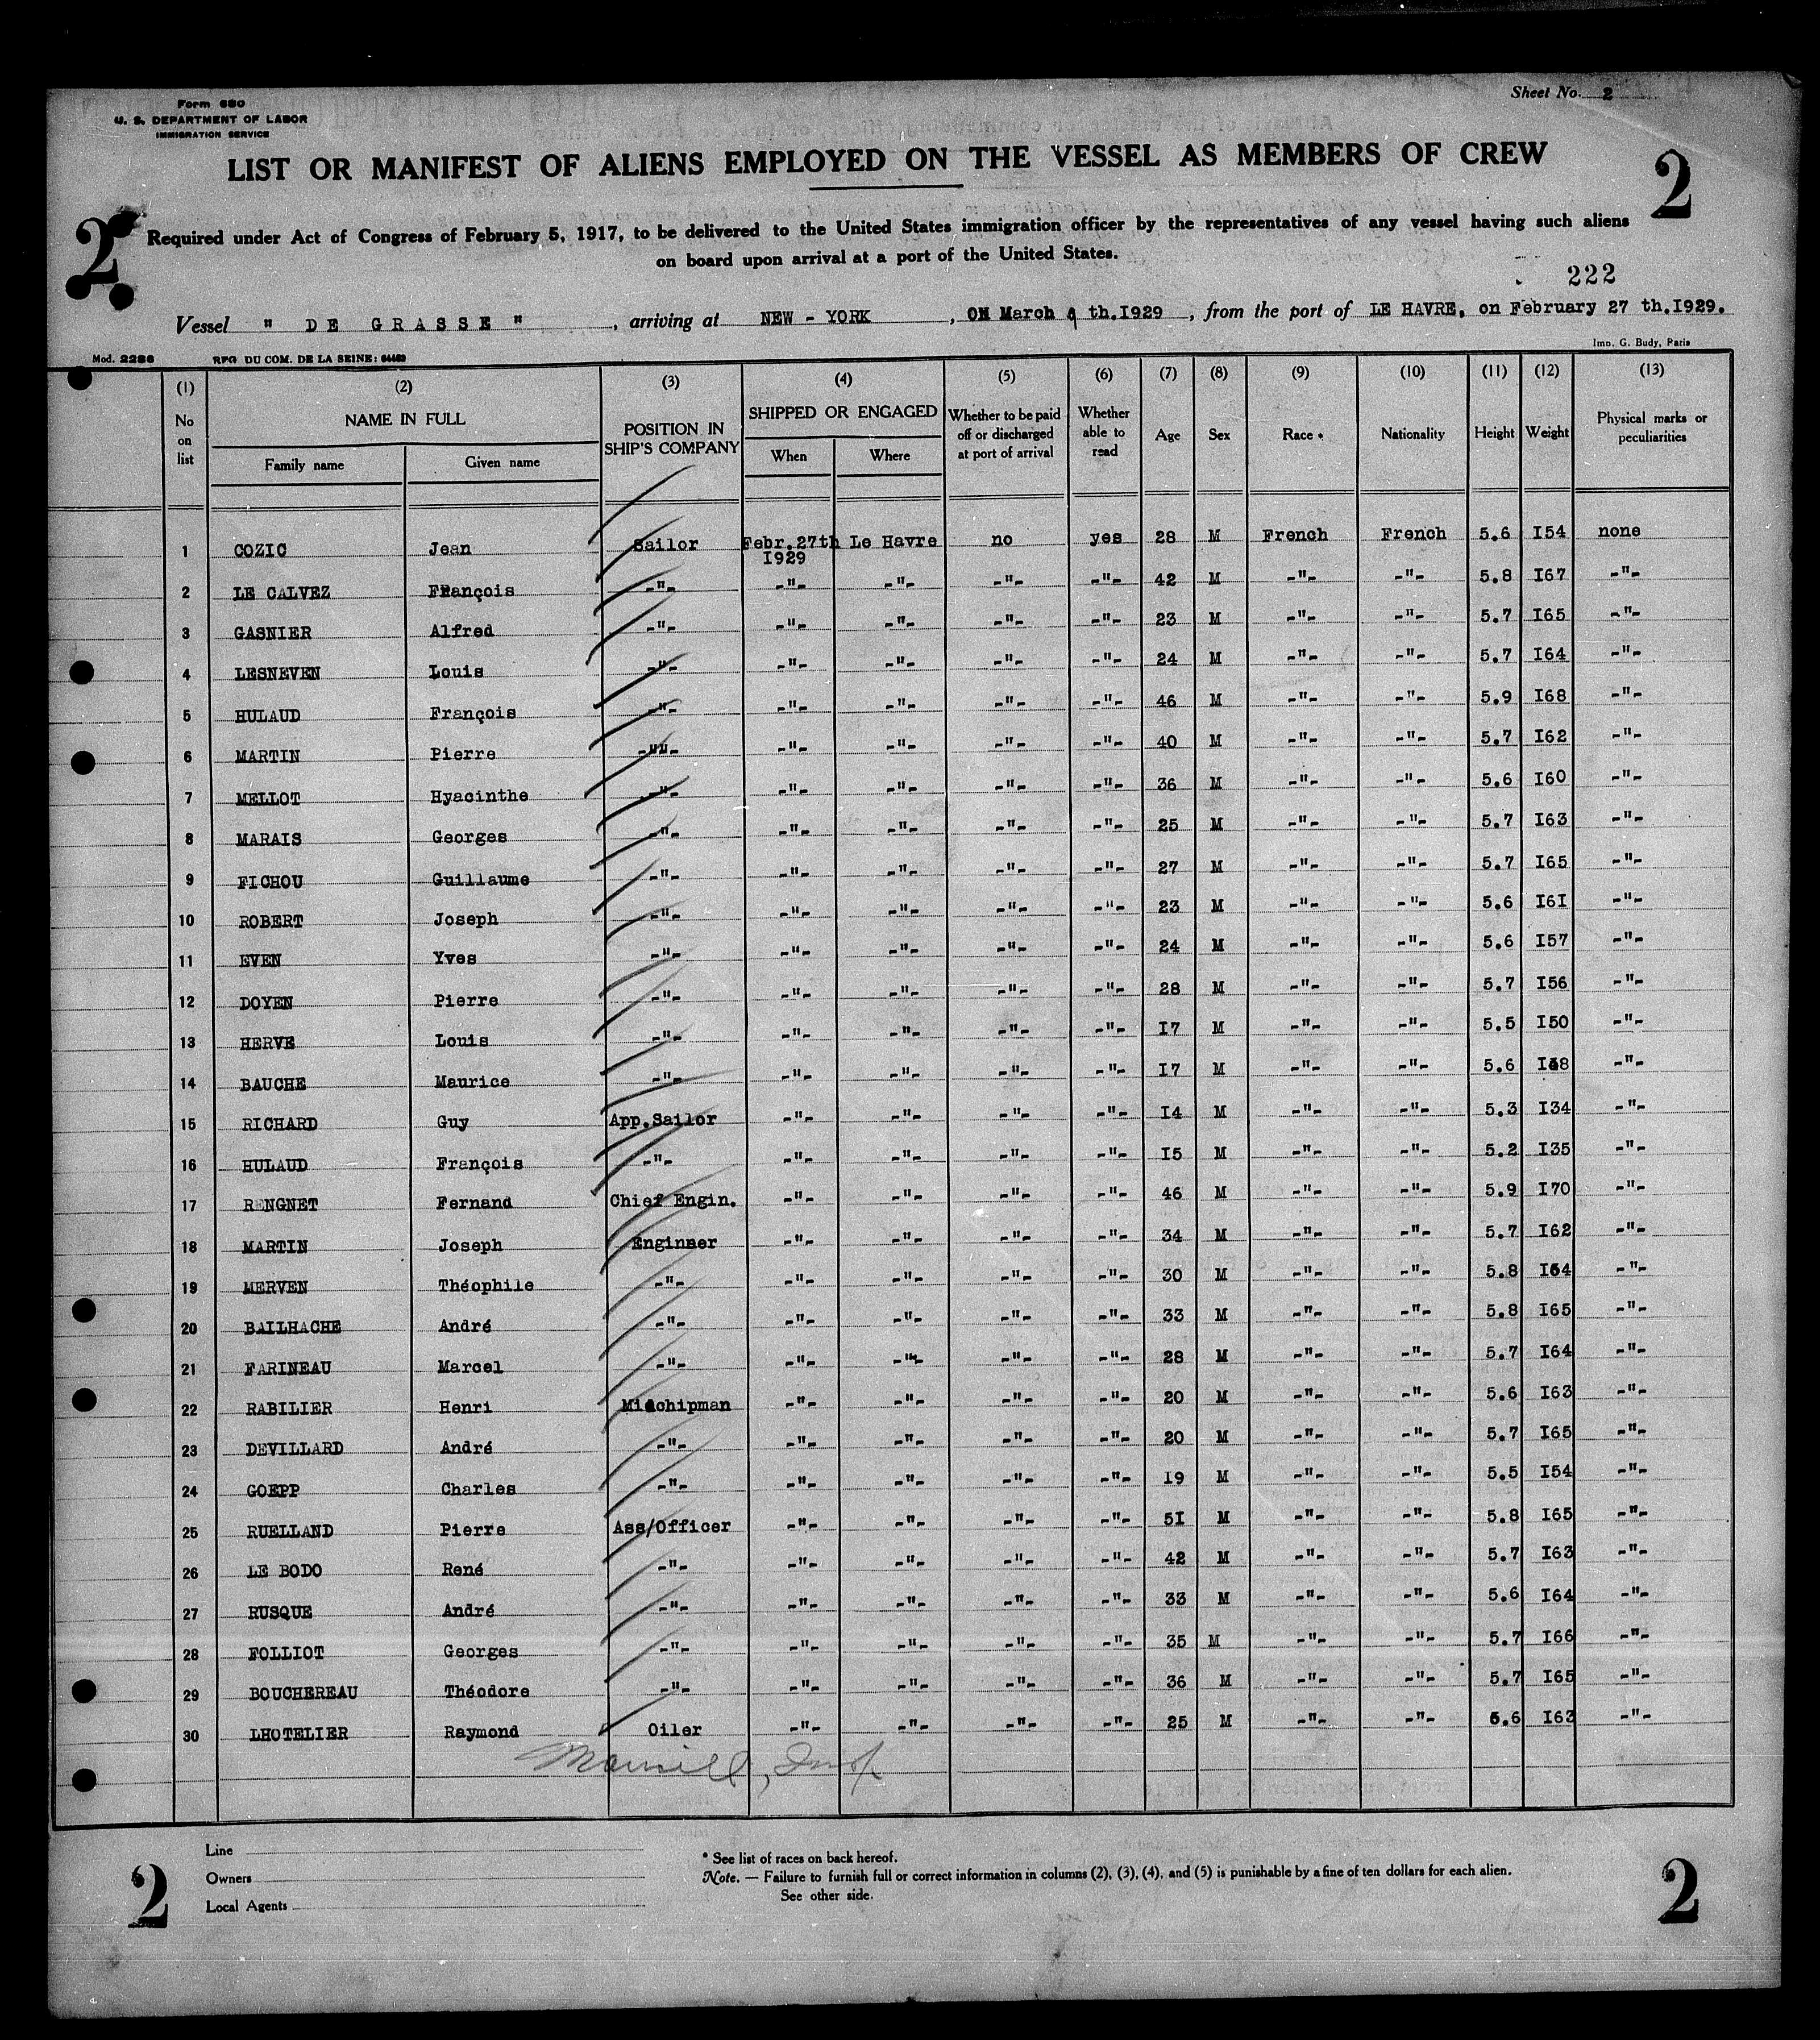 Form 680
U. S. DEPARTMENT OF LABOR
IMMIGRATION SERVICE
Sheet No. 2
LIST OR MANIFEST OF ALIENS EMPLOYED ON THE VESSEL AS MEMBERS OF CREW
2
2
Required under Act of Congress of February 5, 1917, to be delivered to the United States immigration officer by the representatives of any vessel having such aliens
on board upon arrival at a port of the United States.
222
Vessel " DE GRASSE ", arriving at NEW - YORK, ON March 9 th.I929, from the port of LE HAVRE, on February 27 th.I929.
Mod. 2286 RPG DU COM. DE LA SEINE: 64469 Imp. G. Budy, Paris
(1) (2) (3) (4) (5) (6) (7) (8) (9) (10) (11) (12) (13)
No on list NAME IN FULL POSITION IN SHIP'S COMPANY SHIPPED OR ENGAGED Whether to be paid off or discharged at port of arrival Whether able to read Age Sex Race * Nationality Height Weight Physical marks or peculiarities
Family name Given name When Where
1 COZIC Jean Sailor Febr.27th I929 Le Havre no yes 28 M French French 5.6 I54 none
2 LE CALVEZ François -"- -"- -"- -"- -"- 42 M -"- -"- 5.8 I67 -"-
3 GASNIER Alfred -"- -"- -"- -"- -"- 23 M -"- -"- 5.7 I65 -"-
4 LESNEVEN Louis -"- -"- -"- -"- -"- 24 M -"- -"- 5.7 I64 -"-
5 HULAUD François -"- -"- -"- -"- -"- 46 M -"- -"- 5.9 I68 -"-
6 MARTIN Pierre -""- -"- -"- -"- -"- 40 M -"- -"- 5.7 I62 -"-
7 MELLOT Hyacinthe -"- -"- -"- -"- -"- 36 M -"- -"- 5.6 I60 -"-
8 MARAIS Georges -"- -"- -"- -"- -"- 25 M -"- -"- 5.7 I63 -"-
9 FICHOU Guillaume -"- -"- -"- -"- -"- 27 M -"- -"- 5.7 I65 -"-
10 ROBERT Joseph -"- -"- -"- -"- -"- 23 M -"- -"- 5.6 I6I -"-
11 EVEN Yves -"- -"- -"- -"- -"- 24 M -"- -"- 5.6 I57 -"-
12 DOYEN Pierre -"- -"- -"- -"- -"- 28 M -"- -"- 5.7 I56 -"-
13 HERVE Louis -"- -"- -"- -"- -"- I7 M -"- -"- 5.5 I50 -"-
14 BAUCHE Maurice -"- -"- -"- -"- -"- I7 M -"- -"- 5.6 -"-
15 RICHARD Guy App.Sailor -"- -"- -"- -"- I4 M -"- -"- 5.3 I34 -"-
16 HULAUD François -"- -"- -"- -"- -"- I5 M -"- -"- 5.2 I35 -"-
17 RENGNET Fernand Chief Engin. -"- -"- -"- -"- 46 M -"- -"- 5.9 I70 -"-
18 MARTIN Joseph Enginner -"- -"- -"- -"- 34 M -"- -"- 5.7 I62 -"-
19 MERVEN Théophile -"- -"- -"- -"- -"- 30 M -"- -"- 5.8 I64 -"-
20 BAILHACHE André -"- -"- -"- -"- -"- 33 M -"- -"- 5.8 I65 -"-
21 FARINEAU Marcel -"- -"- -"- -"- -"- 28 M -"- -"- 5.7 I64 -"-
22 RABILIER Henri Midchipman -"- -"- -"- -"- 20 M -"- -"- 5.6 I63 -"-
23 DEVILLARD André -"- -"- -"- -"- -"- 20 M -"- -"- 5.7 I65 -"-
24 GOEPP Charles -"- -"- -"- -"- -"- I9 M -"- -"- 5.5 I54 -"-
25 RUELLAND Pierre Ass/Officer -"- -"- -"- -"- 5I M -"- -"- 5.8 I65 -"-
26 LE BODO René -"- -"- -"- -"- -"- 42 M -"- -"- 5.7 I63 -"-
27 RUSQUE André -"- -"- -"- -"- -"- 33 M -"- -"- 5.6 I64 -"-
28 FOLLIOT Georges -"- -"- -"- -"- -"- 35 M -"- -"- 5.7 I66 -"-
29 BOUCHEREAU Théodore -"- -"- -"- -"- -"- 36 M -"- -"- 5.7 I65 -"-
30 LHOTELIER Raymond Oiler -"- -"- -"- -"- 25 M -"- -"- 5.6 I63 -"-
Line
Owners
Local Agents
* See list of races on back hereof.
Note. — Failure to furnish full or correct information in columns (2), (3), (4), and (5) is punishable by a fine of ten dollars for each alien.
See other side.
2
2